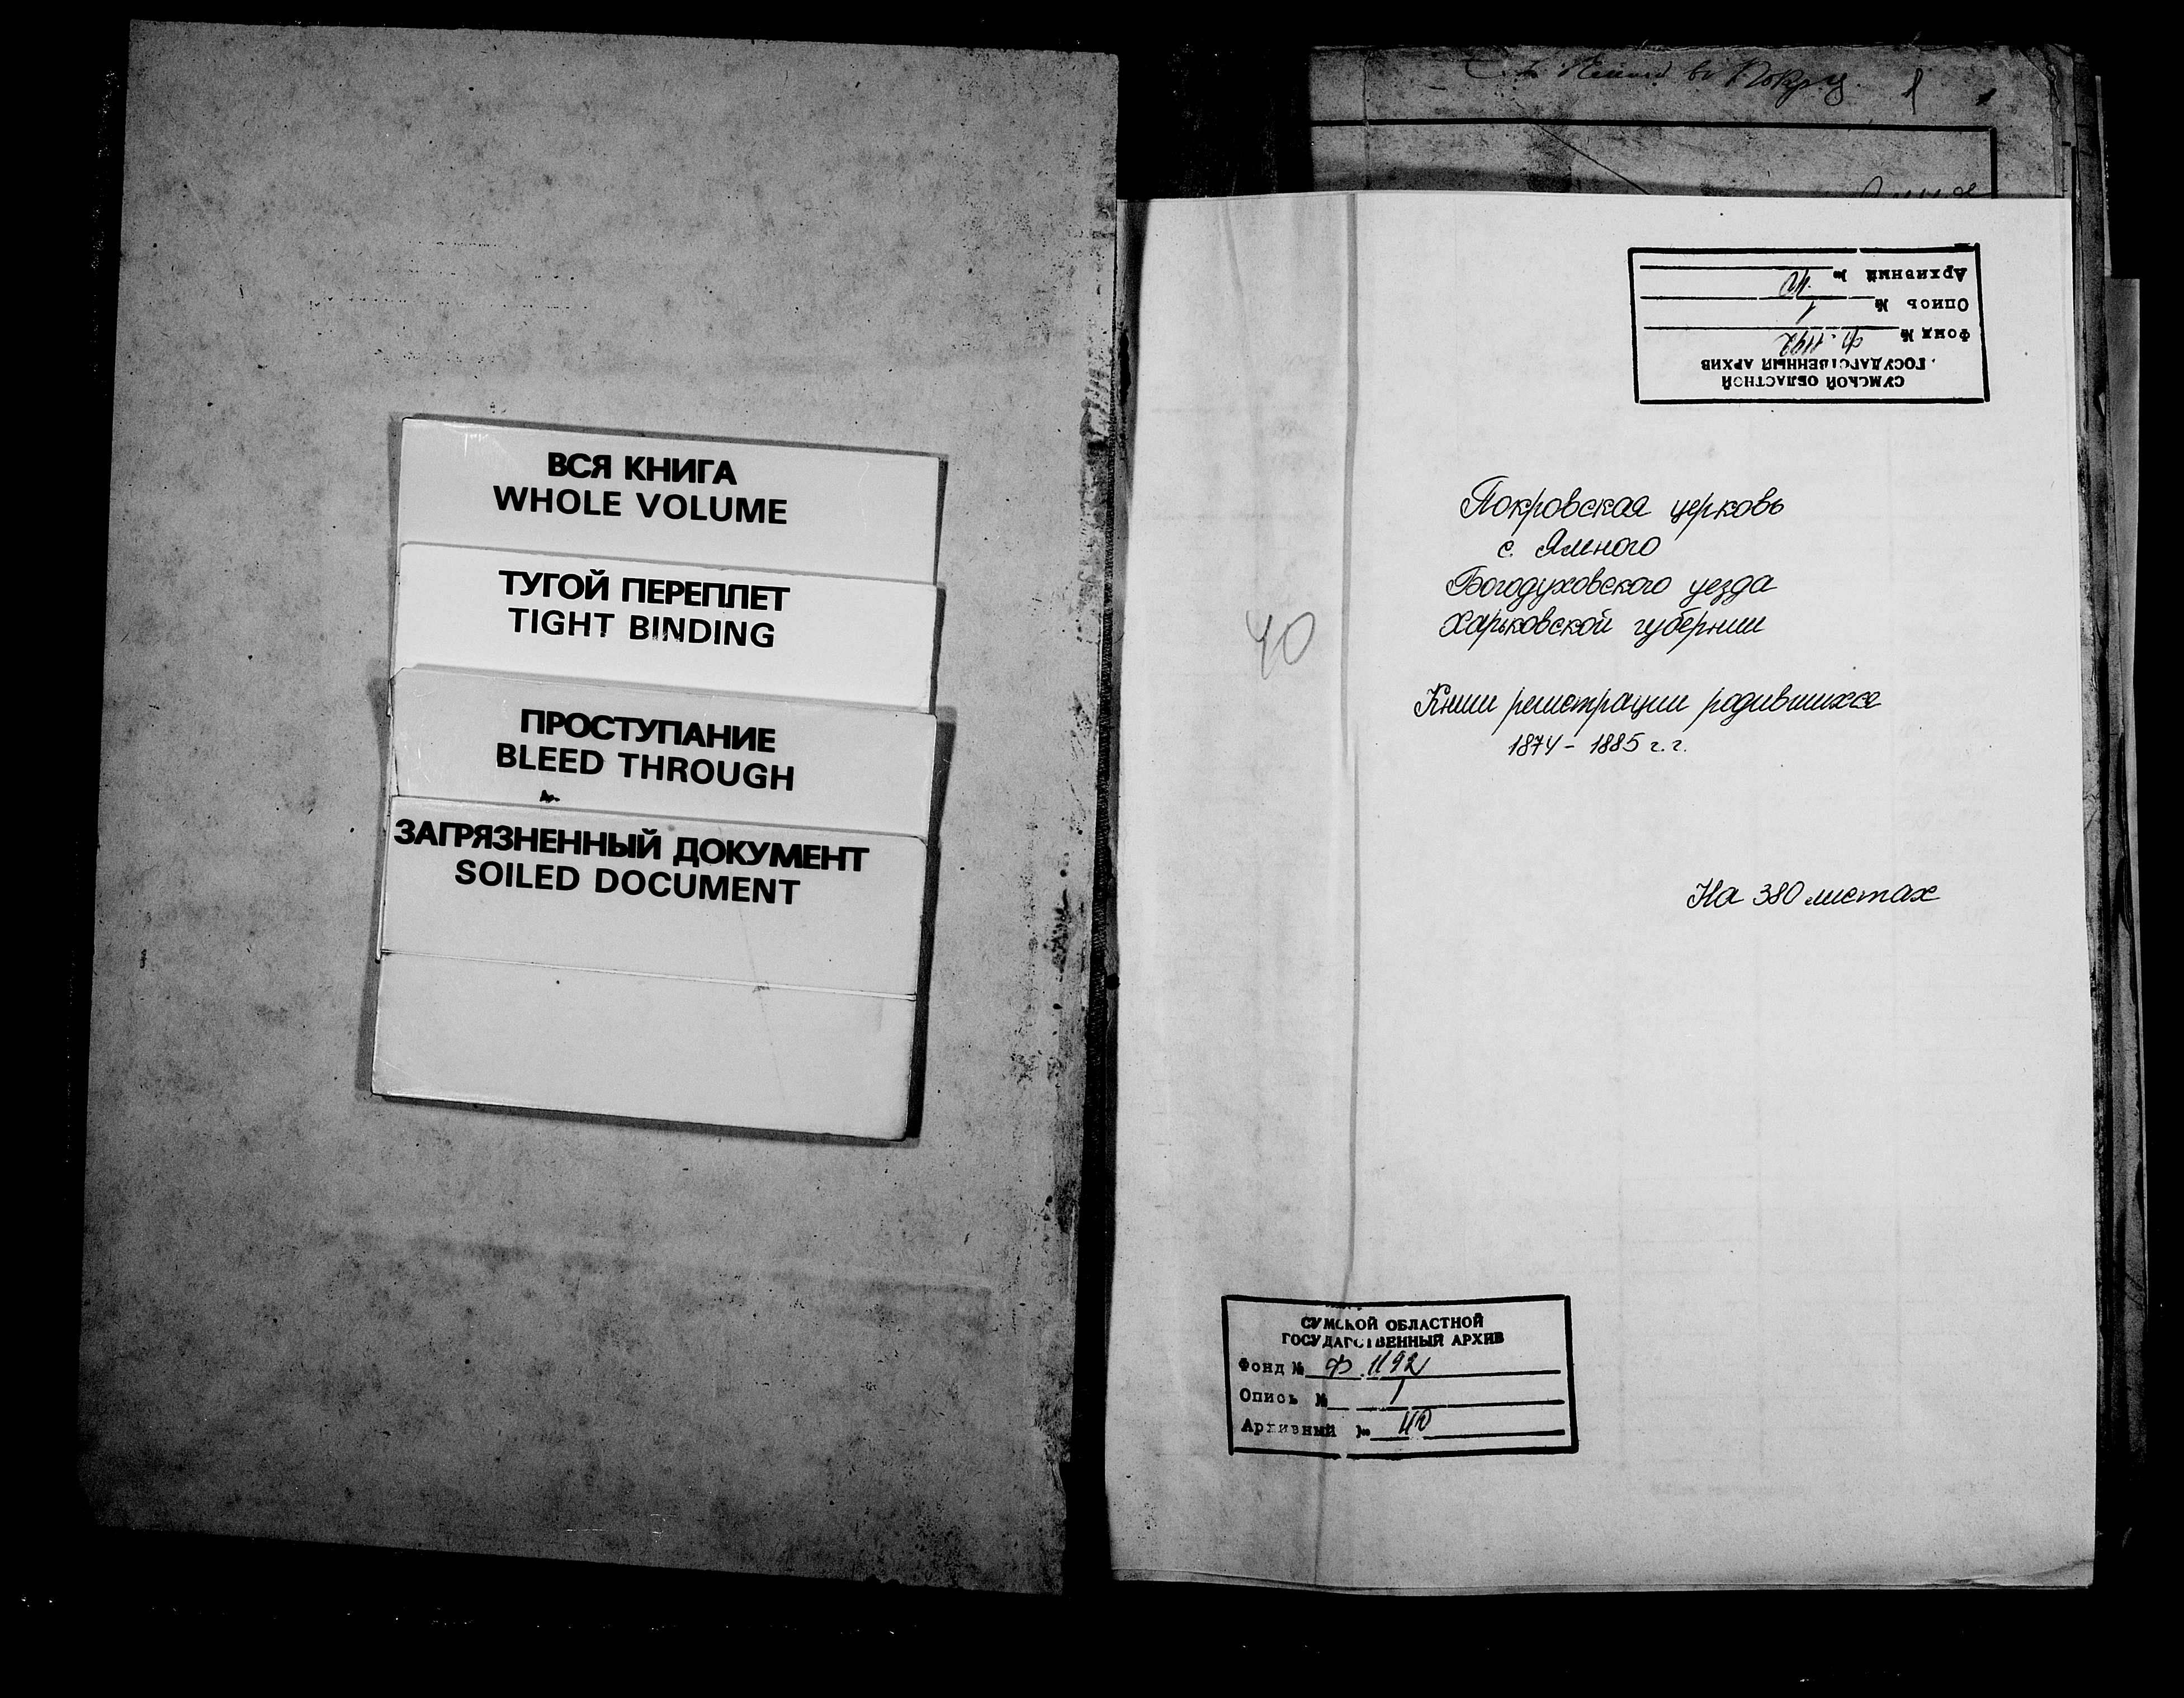 ВСЯ КНИГА
WHOLE VOLUME
ТУГОЙ ПЕРЕПЛЕТ
TIGHT BINDING
ПРОСТУПАНИЕ
BLEED THROUGH
ЗАГРЯЗНЕННЫЙ ДОКУМЕНТ
SOILED DOCUMENT
СУМСКОЙ ОБЛАСТНОЙ
ГОСУДАРСТВЕННЫЙ АРХИВ
Фонд № Ф. 1192
Опись № 1
Архивный № 40
Покровская церковь
с. Ямного
Богодуховского уезда
Харьковской губернии
40
Книги регистрации родившихся
1874 - 1885 г.г.
На 380 листах
СУМСКОЙ ОБЛАСТНОЙ
ГОСУДАРСТВЕННЫЙ АРХИВ
Фонд № Ф. 1192
Опись № 1
Архивный № 40